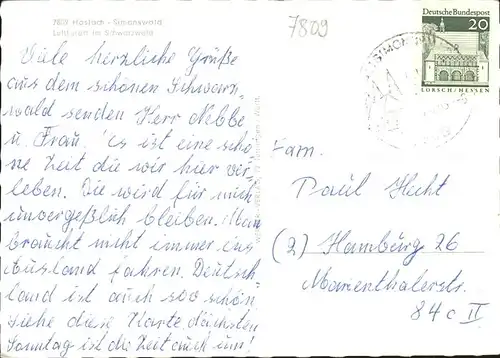 7809 Haslach - Simonswald
Luftkurort im Schwarzwald
7809
Deutsche Bundespost
20
LORSCH/HESSEN
Viele herzliche Grüße
aus dem schönen Schwarz-
wald senden Herr Nebbe
u. Frau. Es ist eine schö
ne Zeit die wir hier ver-
leben. Sie wird für mich
unvergeßlich bleiben. Man
braucht nicht immer ins
Ausland fahren. Deutsch
land ist auch soo schön
siehe diese Karte. Nächsten
Sonntag ist die Zeit auch um!
Fam.
Paul Hecht
(2) Hamburg 26
Marienthalerstr.
84c II